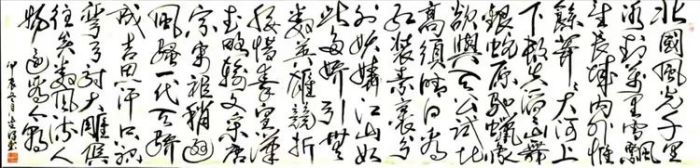 北國風光千里
冰封萬里雪飄
望長城內外惟
餘莽莽大河上
下頓失滔滔山舞
銀蛇原馳蠟象
欲與天公試比
高須晴日看
紅裝素裹分
外妖嬈江山如
此多嬌引無
數英雄競折
腰惜秦皇漢
武略輸文采唐
宗宋祖稍遜
風騷一代天驕
成吉思汗只識
彎弓射大雕俱
往矣數風流人
物還看今朝
甲辰